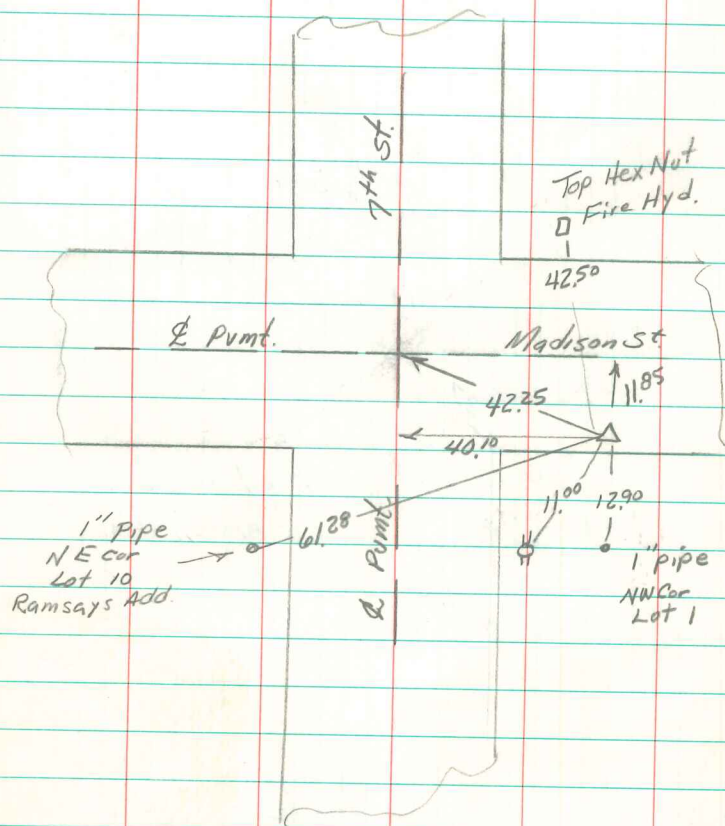 7th St.
Top Hex Nut
Fire Hyd.
42.50
℄ Pvmt.
Madison St.
11.85
42.25
40.10
11.00
12.90
61.28
1" Pipe
N E cor
Lot 10
Ramsays Add.
℄ Pvmt
1" pipe
NW Cor
Lot 1